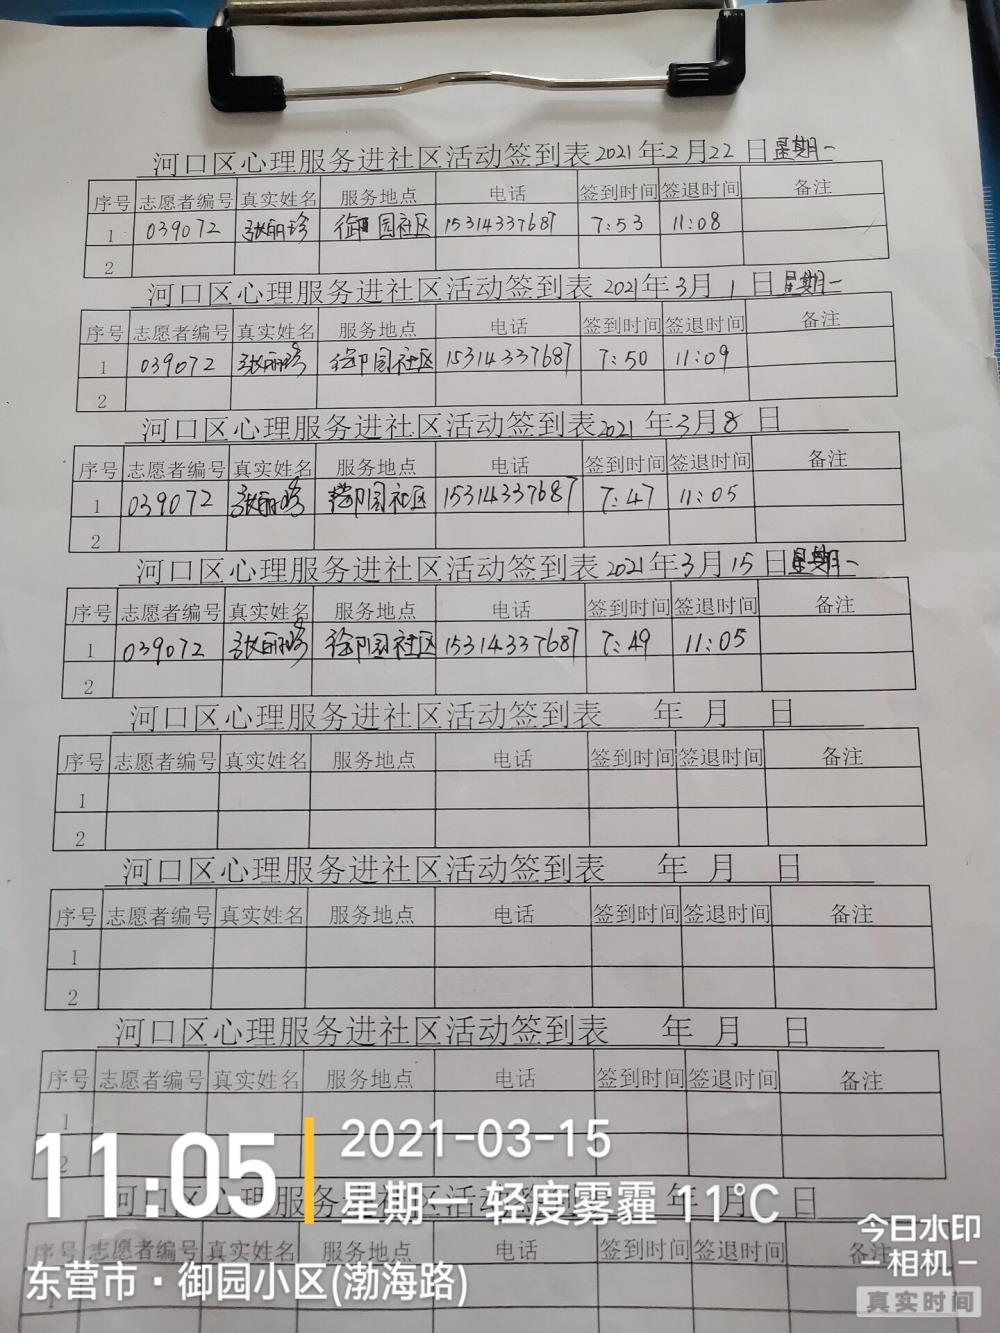 河口区心理服务进社区活动签到表2021年2月22日星期一
序号 志愿者编号 真实姓名 服务地点 电话 签到时间 签退时间 备注
1 039072 张丽珍 御园社区 15314337687 7:53 11:08
2
河口区心理服务进社区活动签到表2021年3月1日星期一
序号 志愿者编号 真实姓名 服务地点 电话 签到时间 签退时间 备注
1 039072 张丽珍 御园社区 15314337687 7:50 11:09
2
河口区心理服务进社区活动签到表2021年3月8日
序号 志愿者编号 真实姓名 服务地点 电话 签到时间 签退时间 备注
1 039072 张丽珍 御园社区 15314337687 7:47 11:05
2
河口区心理服务进社区活动签到表2021年3月15日星期一
序号 志愿者编号 真实姓名 服务地点 电话 签到时间 签退时间 备注
1 039072 张丽珍 御园社区 15314337687 7:49 11:05
2
河口区心理服务进社区活动签到表 年 月 日
序号 志愿者编号 真实姓名 服务地点 电话 签到时间 签退时间 备注
1
2
河口区心理服务进社区活动签到表 年 月 日
序号 志愿者编号 真实姓名 服务地点 电话 签到时间 签退时间 备注
1
2
河口区心理服务进社区活动签到表 年 月 日
序号 志愿者编号 真实姓名 服务地点 电话 签到时间 签退时间 备注
1
2
11:05
2021-03-15
星期一 轻度雾霾 11°C
河口区心理服务进社区活动签到表 年 月 日
序号 志愿者编号 真实姓名 服务地点 电话 签到时间 签退时间 备注
1
东营市·御园小区(渤海路)
今日水印
-相机-
真实时间